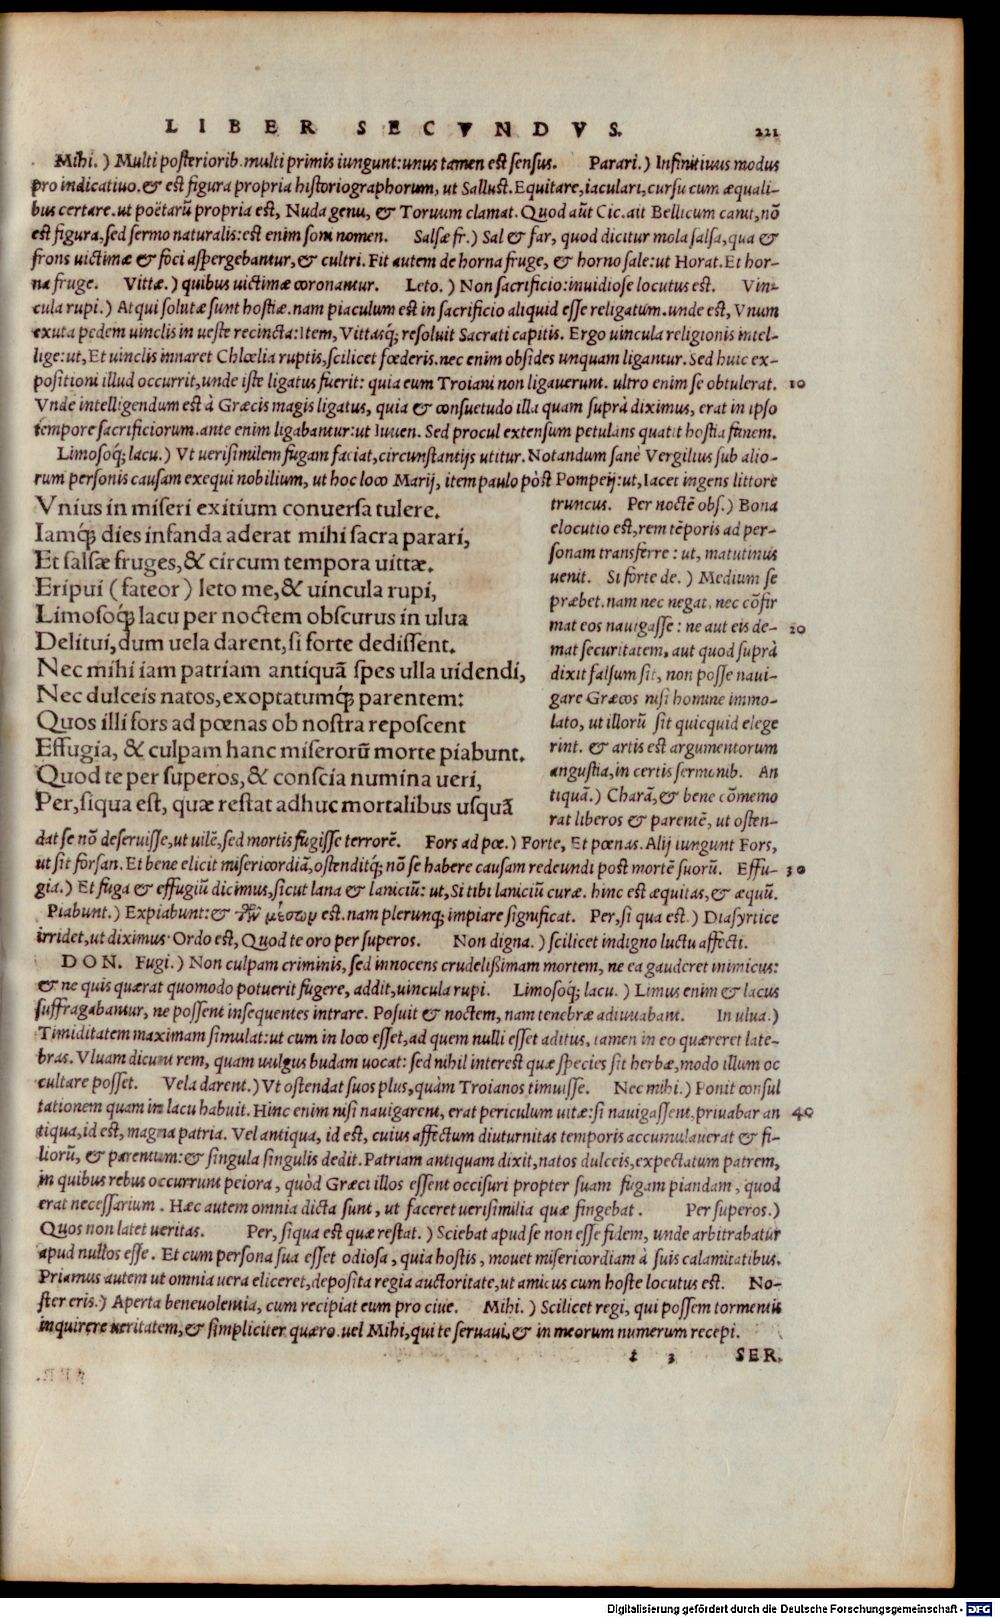 LIBER SECVNDVS. 221
Mihi.) Multi posteriorib. multi primis iungunt: unus tamen est sensus. Parari.) Infinitiuus modus
pro indicatiuo. & est figura propria historiographorum, ut Sallust. Equitare, iaculari, cursu cum æquali-
bus certare. ut poëtarũ propria est, Nuda genu, & Toruum clamat. Quod aũt Cic. ait Bellicum canit, nõ
est figura, sed sermo naturalis: est enim soni nomen. Salsæ fr.) Sal & far, quod dicitur mola salsa, qua &
frons uictimæ & foci aspergebantur, & cultri. Fit autem de horna fruge, & horno sale: ut Horat. Et hor-
na fruge. Vittæ.) quibus uictimæ coronantur. Leto.) Non sacrificio: inuidiose locutus est. Vin-
cula rupi.) Atqui solutæ sunt hostiæ. nam piaculum est in sacrificio aliquid esse religatum. unde est, Vnum
exuta pedem uinclis in ueste recincta: Item, Vittasq́; resoluit Sacrati capitis. Ergo uincula religionis intel-
lige: ut, Et uinclis innaret Chlœlia ruptis, scilicet fœderis. nec enim obsides unquam ligantur. Sed huic ex-
positioni illud occurrit, unde iste ligatus fuerit: quia eum Troiani non ligauerunt. ultro enim se obtulerat. 10
Vnde intelligendum est à Græcis magis ligatus, quia & consuetudo illa quam suprà diximus, erat in ipso
tempore sacrificiorum. ante enim ligabantur: ut Iuuen. Sed procul extensum petulans quatit hostia funem.
Limosoq́; lacu.) Vt uerisimilem fugam faciat, circunstantijs utitur. Notandum sanè Vergilius sub alio-
rum personis causam exequi nobilium, ut hoc loco Marij, item paulo pòst Pompeij: ut, Iacet ingens littore
Vnius in miseri exitium conuersa tulere.
Iamq́; dies infanda aderat mihi sacra parari,
Et salsæ fruges, & circum tempora uittæ.
Eripui (fateor) leto me, & uincula rupi,
Limosoq́; lacu per noctem obscurus in ulua
Delitui, dum uela darent, si forte dedissent.
Nec mihi iam patriam antiquã spes ulla uidendi,
Nec dulceis natos, exoptatumq́; parentem:
Quos illi fors ad pœnas ob nostra reposcent
Effugia, & culpam hanc miserorũ morte piabunt.
Quod te per superos, & conscia numina ueri,
Per, siqua est, quæ restat adhuc mortalibus usquã
truncus. Per noctẽ obs.) Bona
elocutio est, rem tẽporis ad per-
sonam transferre: ut, matutinus
uenit. Si forte de.) Medium se
præbet. nam nec negat, nec cõfir
mat eos nauigasse: ne aut eis de- 20
mat securitatem, aut quod suprà
dixit falsum sit, non posse naui-
gare Græcos nisi homine immo-
lato, ut illorũ sit quicquid elege
rint. & artis est argumentorum
angustia, in certis sermonib. An
tiquã.) Charã, & bene cõmemo
rat liberos & parentẽ, ut osten-
dat se nõ deseruisse, ut uilẽ, sed mortis fugisse terrorẽ. Fors ad pœ.) Forte, Et pœnas. Alij iungunt Fors,
ut sit forsan. Et bene elicit misericordiã, ostenditq́; nõ se habere causam redeundi post mortẽ suorũ. Effu- 30
gia.) Et fuga & effugiũ dicimus, sicut lana & laniciũ: ut, Si tibi laniciũ curæ. hinc est æquitas, & æquũ.
Piabunt.) Expiabunt: & τῶν μέσων est. nam plerunq; impiare significat. Per, si qua est.) Diasyrtice
irridet, ut diximus. Ordo est, Quod te oro per superos. Non digna.) scilicet indigno luctu affecti.
DON. Fugi.) Non culpam criminis, sed innocens crudelißimam mortem, ne ea gauderet inimicus:
& ne quis quærat quomodo potuerit fugere, addit, uincula rupi. Limosoq́; lacu.) Limus enim & lacus
suffragabantur, ne possent insequentes intrare. Posuit & noctem, nam tenebræ adiuuabant. In ulua.)
Timiditatem maximam simulat: ut cum in loco esset, ad quem nulli esset aditus, tamen in eo quæreret late-
bras. Vluam dicunt rem, quam uulgus budam uocat: sed nihil interest quæ species sit herbæ, modo illum oc
cultare posset. Vela darent.) Vt ostendat suos plus, quàm Troianos timuisse. Nec mihi.) Ponit consul
tationem quam in lacu habuit. Hinc enim nisi nauigarent, erat periculum uitæ: si nauigassent. priuabar an 40
tiqua, id est, magna patria. Vel antiqua, id est, cuius affectum diuturnitas temporis accumulauerat & fi-
liorũ, & parentum: & singula singulis dedit. Patriam antiquam dixit, natos dulceis, expectatum patrem,
in quibus rebus occurrunt peiora, quòd Græci illos essent occisuri propter suam fugam piandam, quod
erat necessarium. Hæc autem omnia dicta sunt, ut faceret uerisimilia quæ fingebat. Per superos.)
Quos non latet ueritas. Per, siqua est quæ restat.) Sciebat apud se non esse fidem, unde arbitrabatur
apud nullos esse. Et cum persona sua esset odiosa, quia hostis, mouet misericordiam à suis calamitatibus.
Priamus autem ut omnia uera eliceret, deposita regia auctoritate, ut amicus cum hoste locutus est. No-
ster eris.) Aperta beneuolentia, cum recipiat eum pro ciue. Mihi.) Scilicet regi, qui possem tormentis
inquirere ueritatem, & simpliciter quæro. uel Mihi, qui te seruaui, & in meorum numerum recepi.
t 3 SER.
Digitalisierung gefördert durch die Deutsche Forschungsgemeinschaft - DFG